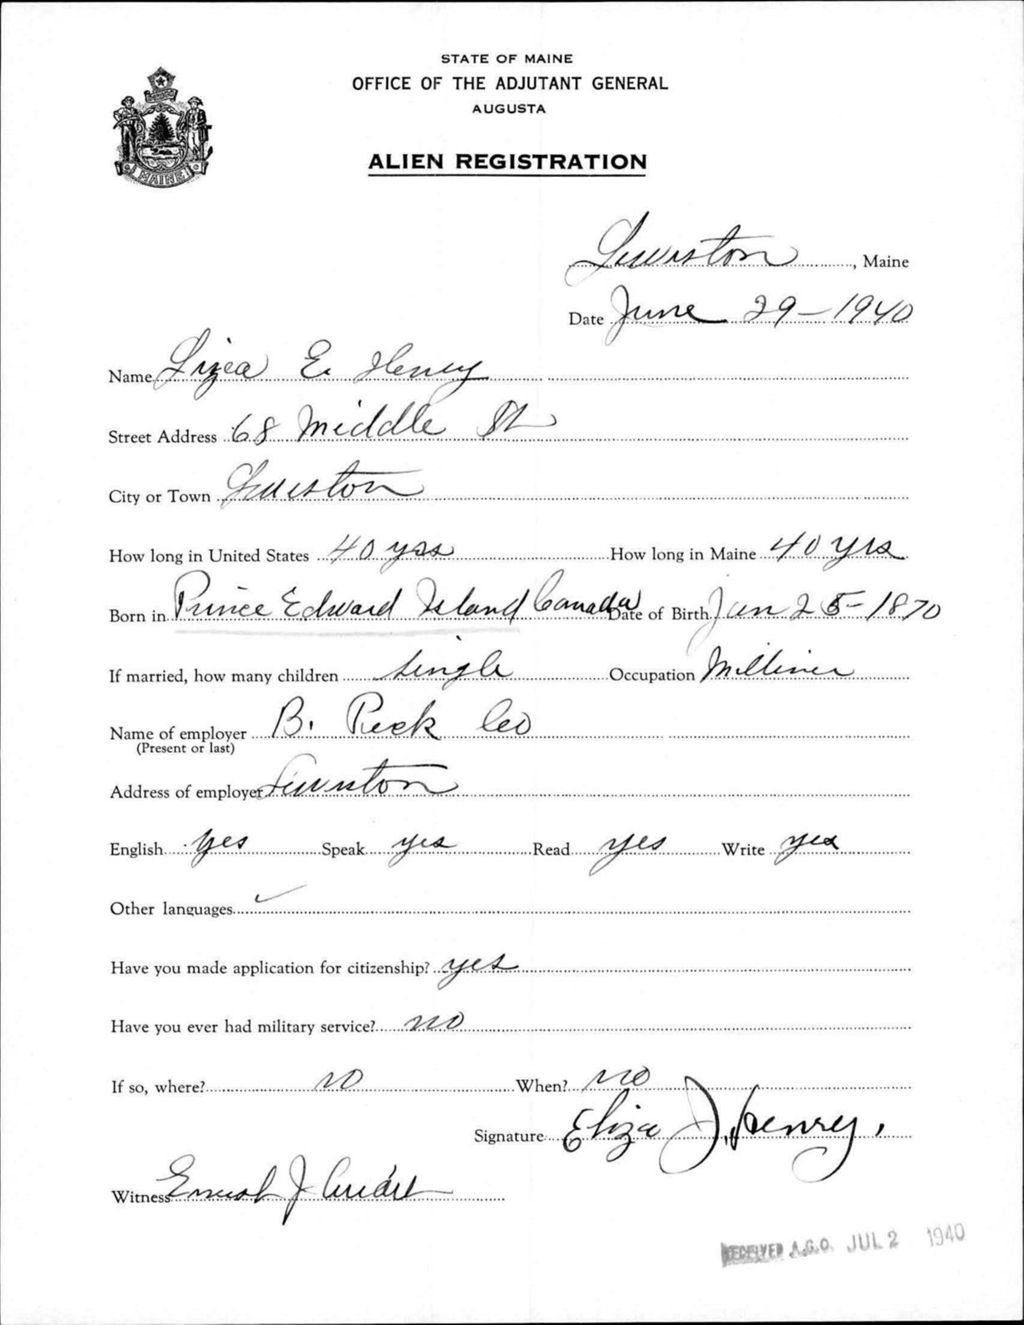 STATE OF MAINE
OFFICE OF THE ADJUTANT GENERAL
AUGUSTA
MAINE
ALIEN REGISTRATION
Lewiston, Maine
Date June 29 - 1940
Name Lizea E. Henry
Street Address 68 Middle St
City or Town Lewiston
How long in United States 40 yrs How long in Maine 40 yrs
Born in Prince Edward Island Canada Date of Birth Jan 25 - 1870
If married, how many children single Occupation Milliner
Name of employer B. Peck Co
(Present or last)
Address of employer Lewiston
English yes Speak yes Read yes Write yes
Other languages
Have you made application for citizenship? yes
Have you ever had military service? no
If so, where? no When? no
Signature Eliza J. Henry.
Witness Ernest J
RECEIVED A.G.O. JUL 2 1940